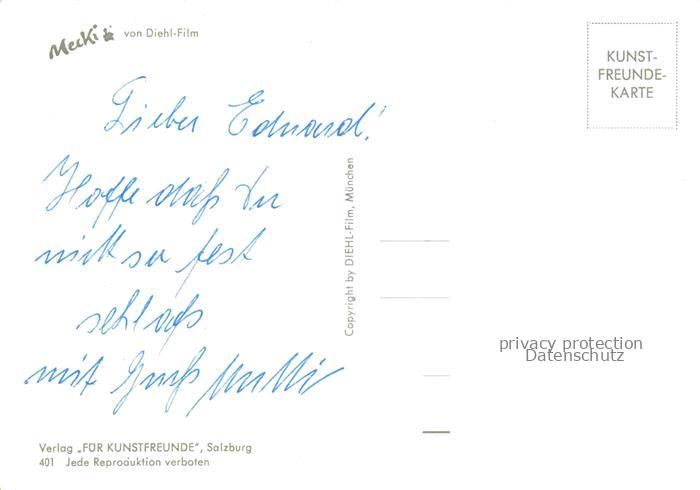 Mecki von Diehl-Film
KUNST-
FREUNDE-
KARTE
Lieber Eduard!
Hoffe daß Du
nicht so fest
schlafs
mit Gruß Mutti
Copyright by DIEHL-Film, München
privacy protection
Datenschutz
Verlag „FÜR KUNSTFREUNDE“, Salzburg
401 Jede Reproduktion verboten